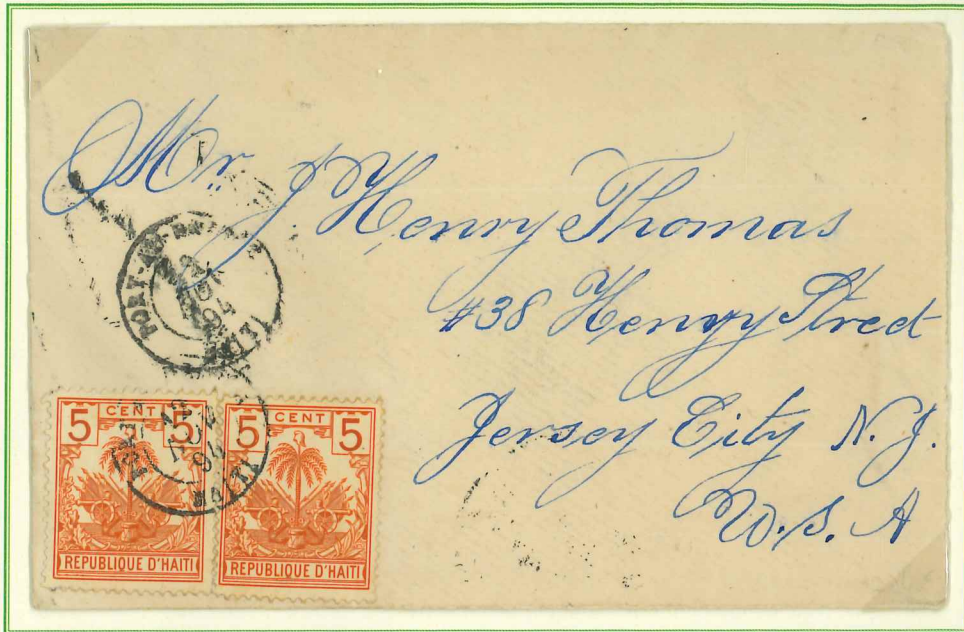 Mr. J Henry Thomas
#38 Henry Street
Jersey City N.J.
U.S.A
PORT-AU-PRINCE
94
HAITI
5 CENT 5
REPUBLIQUE D'HAITI
5 CENT 5
REPUBLIQUE D'HAITI